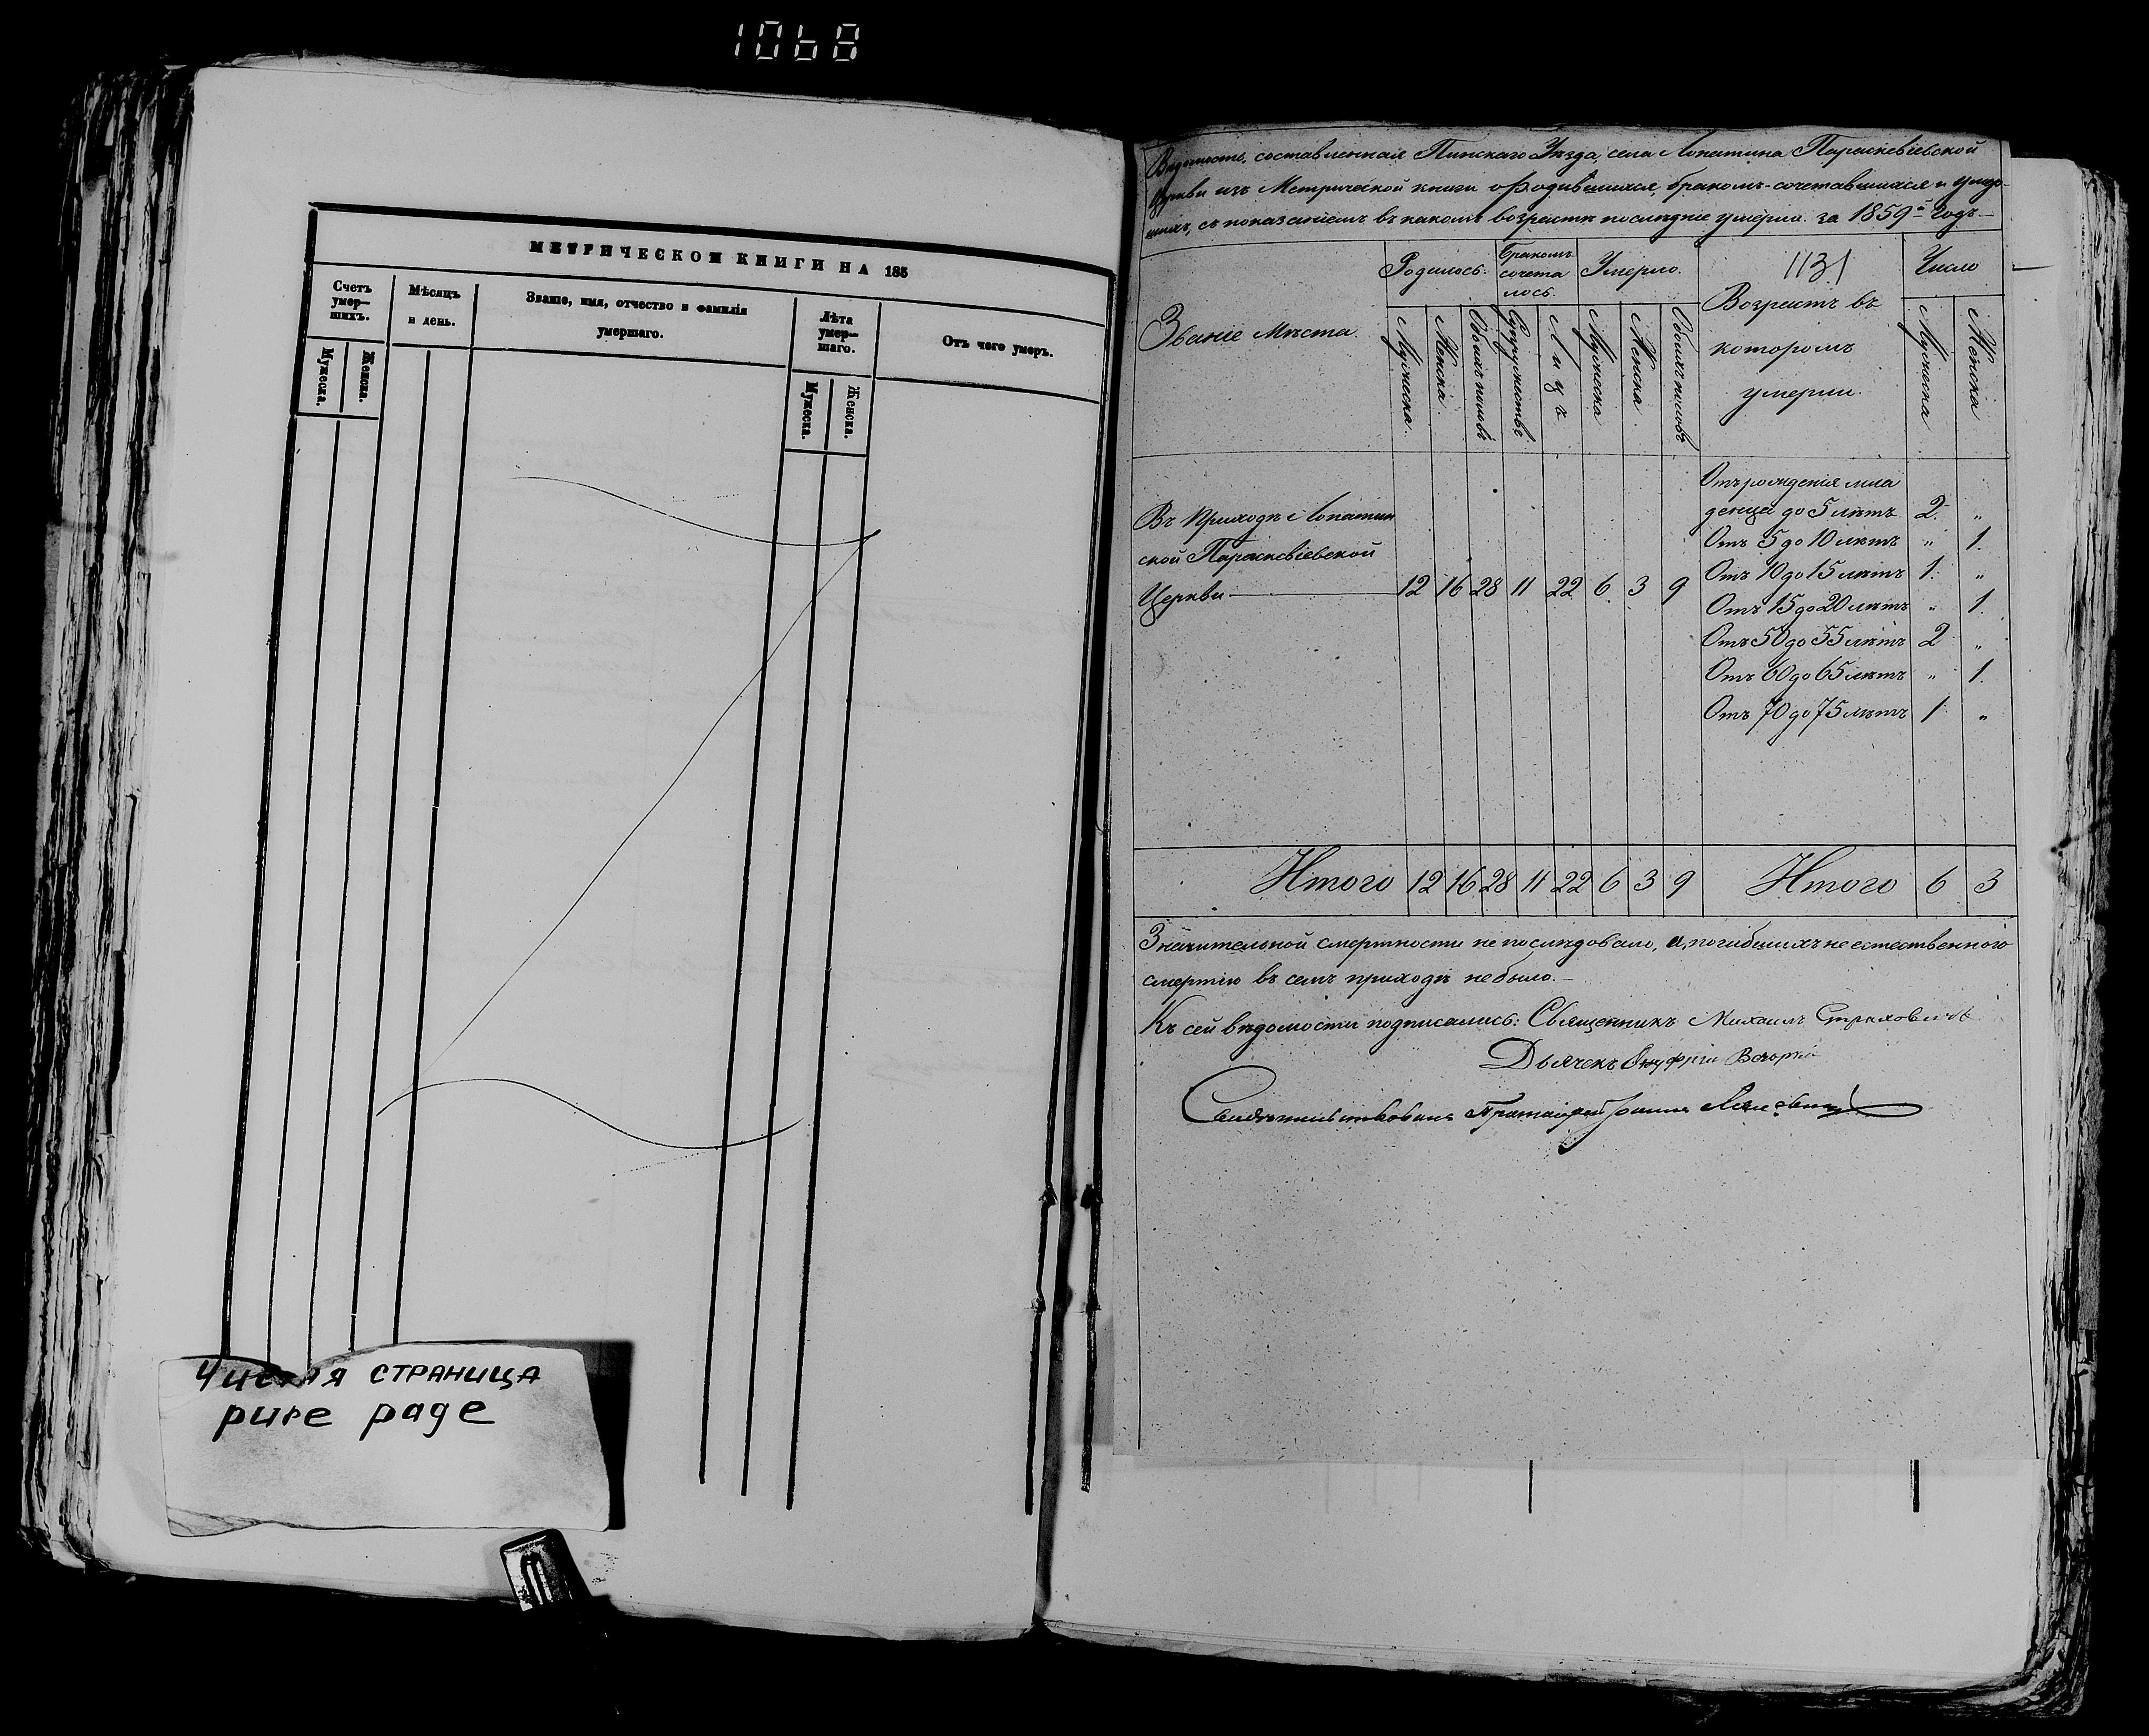 1068
МЕТРИЧЕСКОЙ КНИГИ НА 185
Счетъ
умер—
шихъ.
Мужеска.
Женска.
Мѣсяцъ
и день.
Званіе, имя, отчество и фамилія
умершаго.
Лѣта
умер—
шаго.
Мужеска.
Женска.
Отъ чего умеръ.
Чистая страница
pure page
Вѣдомость, составленная Пинскаго Уѣзда, села Лопатина Параскевіевской
Церкви изъ Метрической книги о Родившихся, бракомъ-сочетавшихся и умер-
шихъ, съ показаніемъ въ какомъ возрастѣ послѣдніе умерли за 1859й Годъ.—
Званіе Мѣста.
Родилось.
Мужеска.
Женска.
Обоихъ половъ
Бракомъ
сочета
лось.
Супружествъ
Лицъ
Умерло.
Мужеска
Женска.
Обоихъ половъ
1131
Возрастъ въ
которомъ
умерли.
Число
Мужеска
Женска
Въ Приходѣ Лопатин
ской Параскевіевской
Церкви — 12 16 28 11 22 6 3 9
Отъ рожденія мла
денца до 5 лѣтъ 2. „
Отъ 5 до 10 лѣтъ „ 1.
Отъ 10 до 15 лѣтъ 1. „
Отъ 15 до 20 лѣтъ „ 1.
Отъ 50 до 55 лѣтъ 2 „
Отъ 60 до 65 лѣтъ „ 1.
Отъ 70 до 75 лѣтъ 1 „
Итого 12 16 28 11 22 6 3 9 Итого 6 3
Значительной смертности не послѣдовало, а, погибшихъ не естественною
смертію въ семъ приходѣ небыло.—
Къ сей вѣдомости подписались: Священникъ Михаилъ Страховичъ
Дьячекъ Онуфрій
Свидѣтельствовалъ